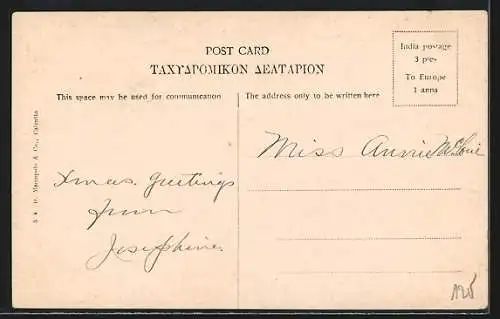 POST CARD
ΤΑΧΥΔΡΟΜΙΚΟΝ ΔΕΛΤΑΡΙΟΝ
India postage
3 pies
To Europe
1 anna
This space may be used for communication
The address only to be written here
D. Macropolo & Co., Calcutta
Miss Annie
Xmas. Greetings
from
Josephine.